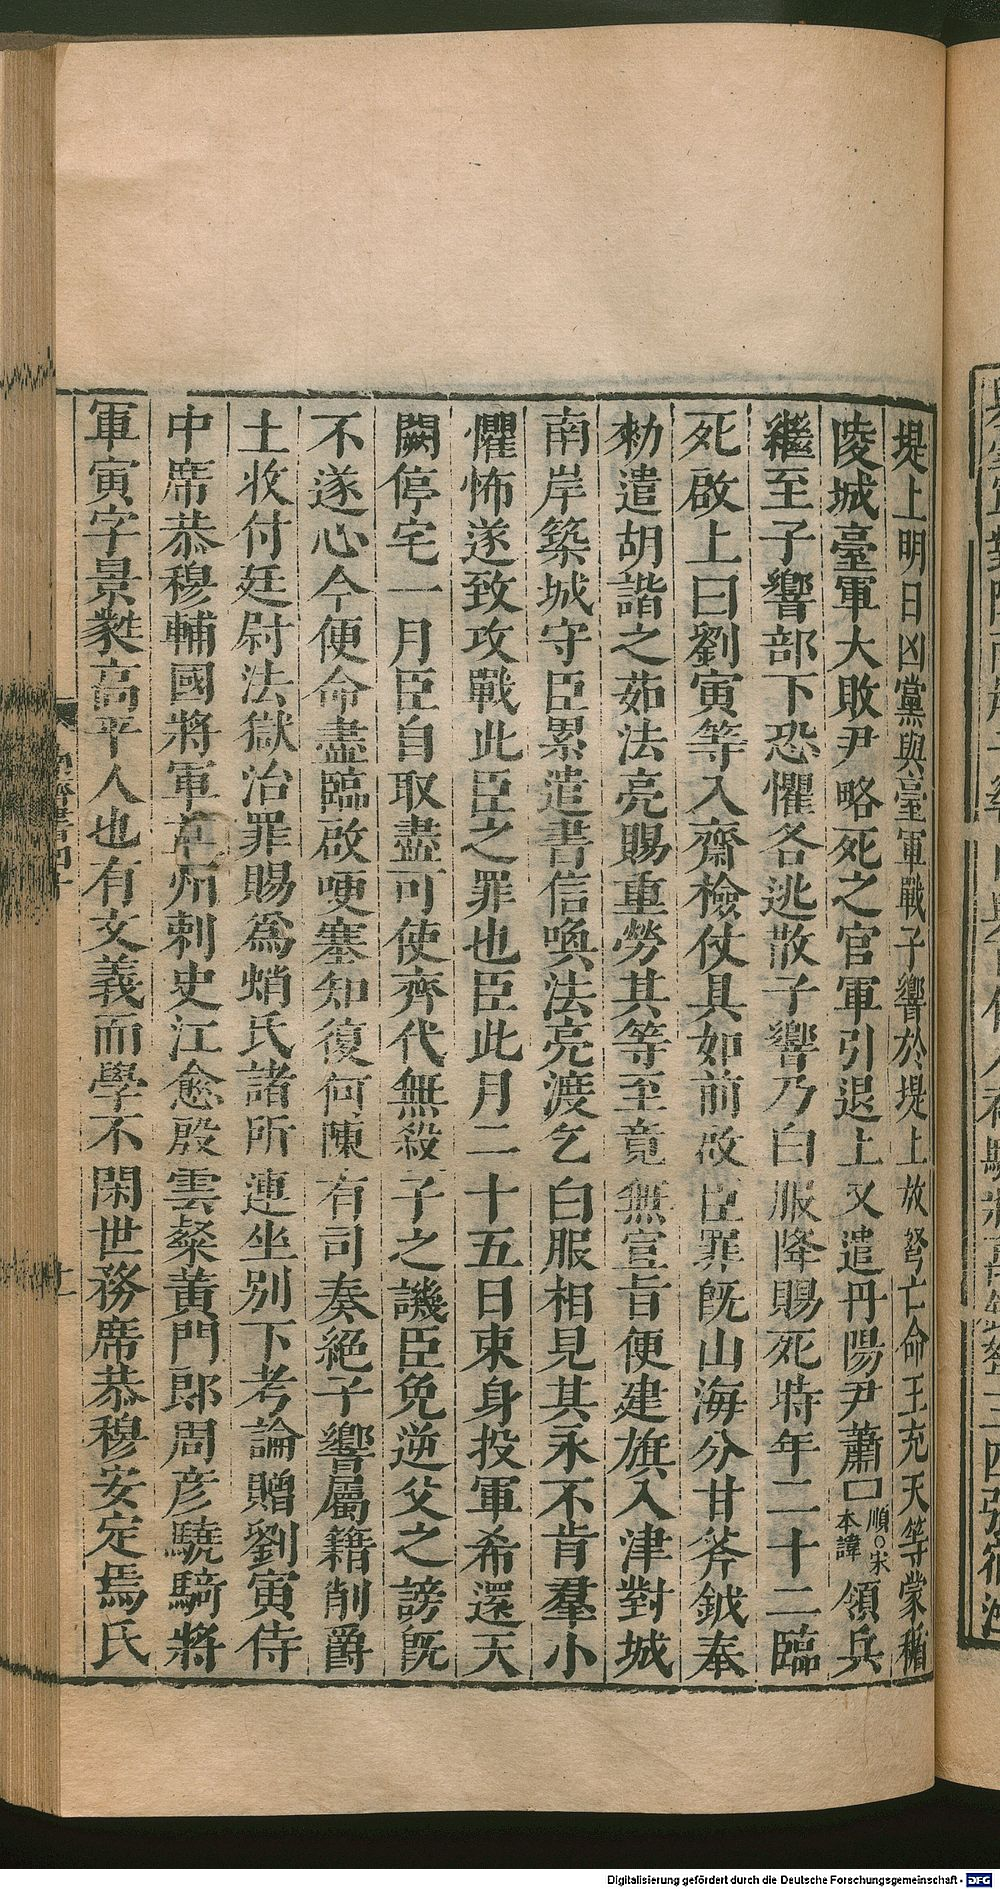 堤上明日凶黨與臺軍戰子響於堤上放弩亡命王充天等蒙楯
陵城臺軍大敗尹略死之官軍引退上又遣丹陽尹蕭口順○宋本諱領兵
繼至子響部下恐懼各逃散子響乃白服降賜死時年二十二臨
死啟上曰劉寅等入齋檢仗具如前啟臣罪旣山海分甘斧鉞奉
勑遣胡諧之茹法亮賜重勞其等至竟無宣旨便建旗入津對城
南岸築城守臣累遣書信喚法亮渡乞白服相見其永不肯羣小
懼怖遂致攻戰此臣之罪也臣此月二十五日束身投軍希還天
闕停宅一月臣自取盡可使齊代無殺子之譏臣免逆父之謗旣
不遂心今便命盡臨啟哽塞知復何陳有司奏絕子響屬籍削爵
土收付廷尉法獄治罪賜爲蛸氏諸所連坐別下考論贈劉寅侍
中席恭穆輔國將軍益州刺史江愈殷雲粲黃門郎周彥驍騎將
軍寅字景蕤高平人也有文義而學不閑世務席恭穆安定焉氏
南齊書四十
十一
Digitalisierung gefördert durch die Deutsche Forschungsgemeinschaft - DFG